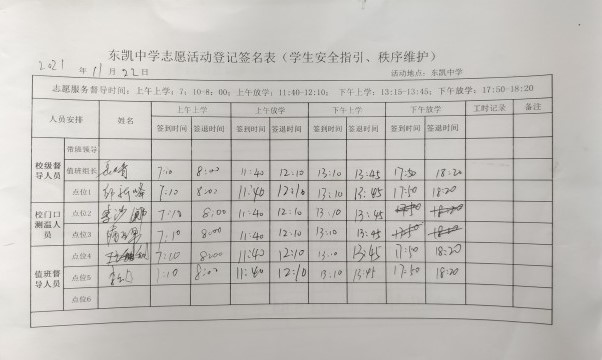 东凯中学志愿活动登记签名表（学生安全指引、秩序维护）
2021 年 11 月 22 日 活动地点：东凯中学
志愿服务督导时间：上午上学：7：10-8：00；上午放学：11:40-12:10；下午上学：13:15-13:45；下午放学：17:50-18:20
人员安排 姓名 上午上学 上午放学 下午上学 下午放学 工时记录 备注
签到时间 签退时间 签到时间 签退时间 签到时间 签退时间 签到时间 签退时间
校级督导人员 带班领导
值班组长 7:10 8:00 11:40 12:10 13:10 13:45 17:50 18:20
点位1 7:10 8:00 11:40 12:10 13:10 13:45 17:50 18:20
校门口测温人员 点位2 7:10 8:00 11:40 12:10 13:10 13:45 17:50 18:20
点位3 7:10 8:00 11:40 12:10 13:10 13:45 17:50 18:20
值班督导人员 点位4 7:10 8:00 11:40 12:10 13:10 13:45 17:50 18:20
点位5 7:10 8:00 11:40 12:10 13:10 13:45 17:50 18:20
点位6